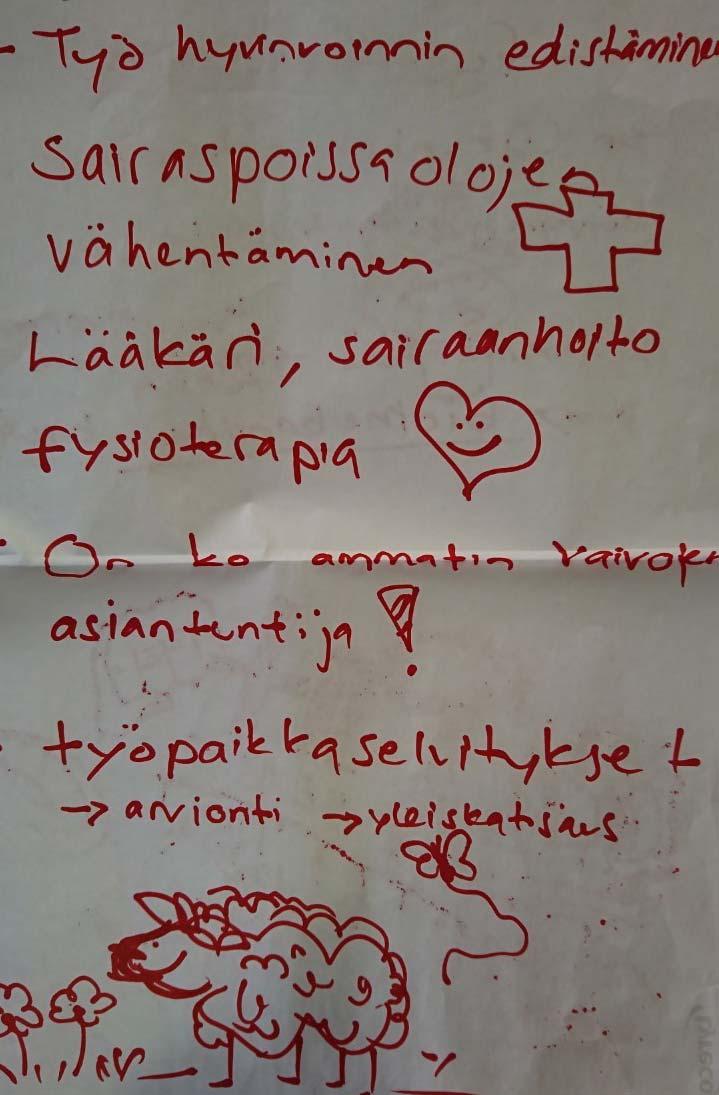 - Työ hyvinvoinnin edistäminen
Sairaspoissaolojen
vähentäminen
Lääkäri, sairaanhoito
fysioterapia
On ko ammatin
asiantentija !
työpaikkaselvitykset
→ arvionti → yleiskatsaus
lyreco